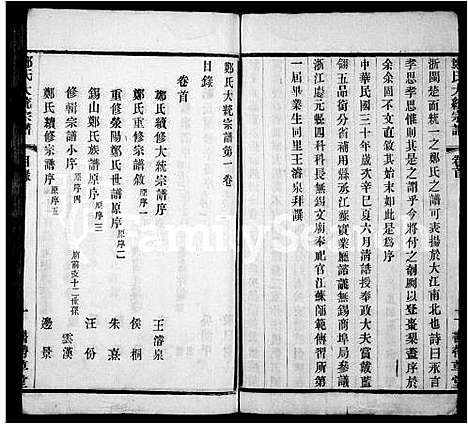 鄭氏大統宗譜
卷首
浙閩楚而統一之鄭氏之譜可表揚於大江南北也乎詩曰永言
孝思孝思惟則其是之謂乎今將付之剞劂以壽梨棗蓋序於
余余固不辭而書其始末如此是爲序
中華民國三十年歲辛巳夏六月清誥授奉政大夫賞戴藍
翎五品銜補用縣丞江蘇實業廳諮議無錫商埠局參議
浙江慶元縣四科科長無錫文廟奉祀官江蘇師範傳習所第
一屆畢業生同里王濬泉拜譔
鄭氏大統宗譜第一卷
目錄
卷首
鄭氏重修大統宗譜序 王濬泉
鄭氏重修宗譜敘 原序一 侯桐
重修滎陽鄭氏世譜原序 原序二 朱熹
錫山鄭氏族譜原序 原序三 汪份
修輯宗譜小序 原序四 雲漢
鄭氏續修宗譜序 原序五 邊景
鄭氏大統宗譜
目錄
一
FamilySearch